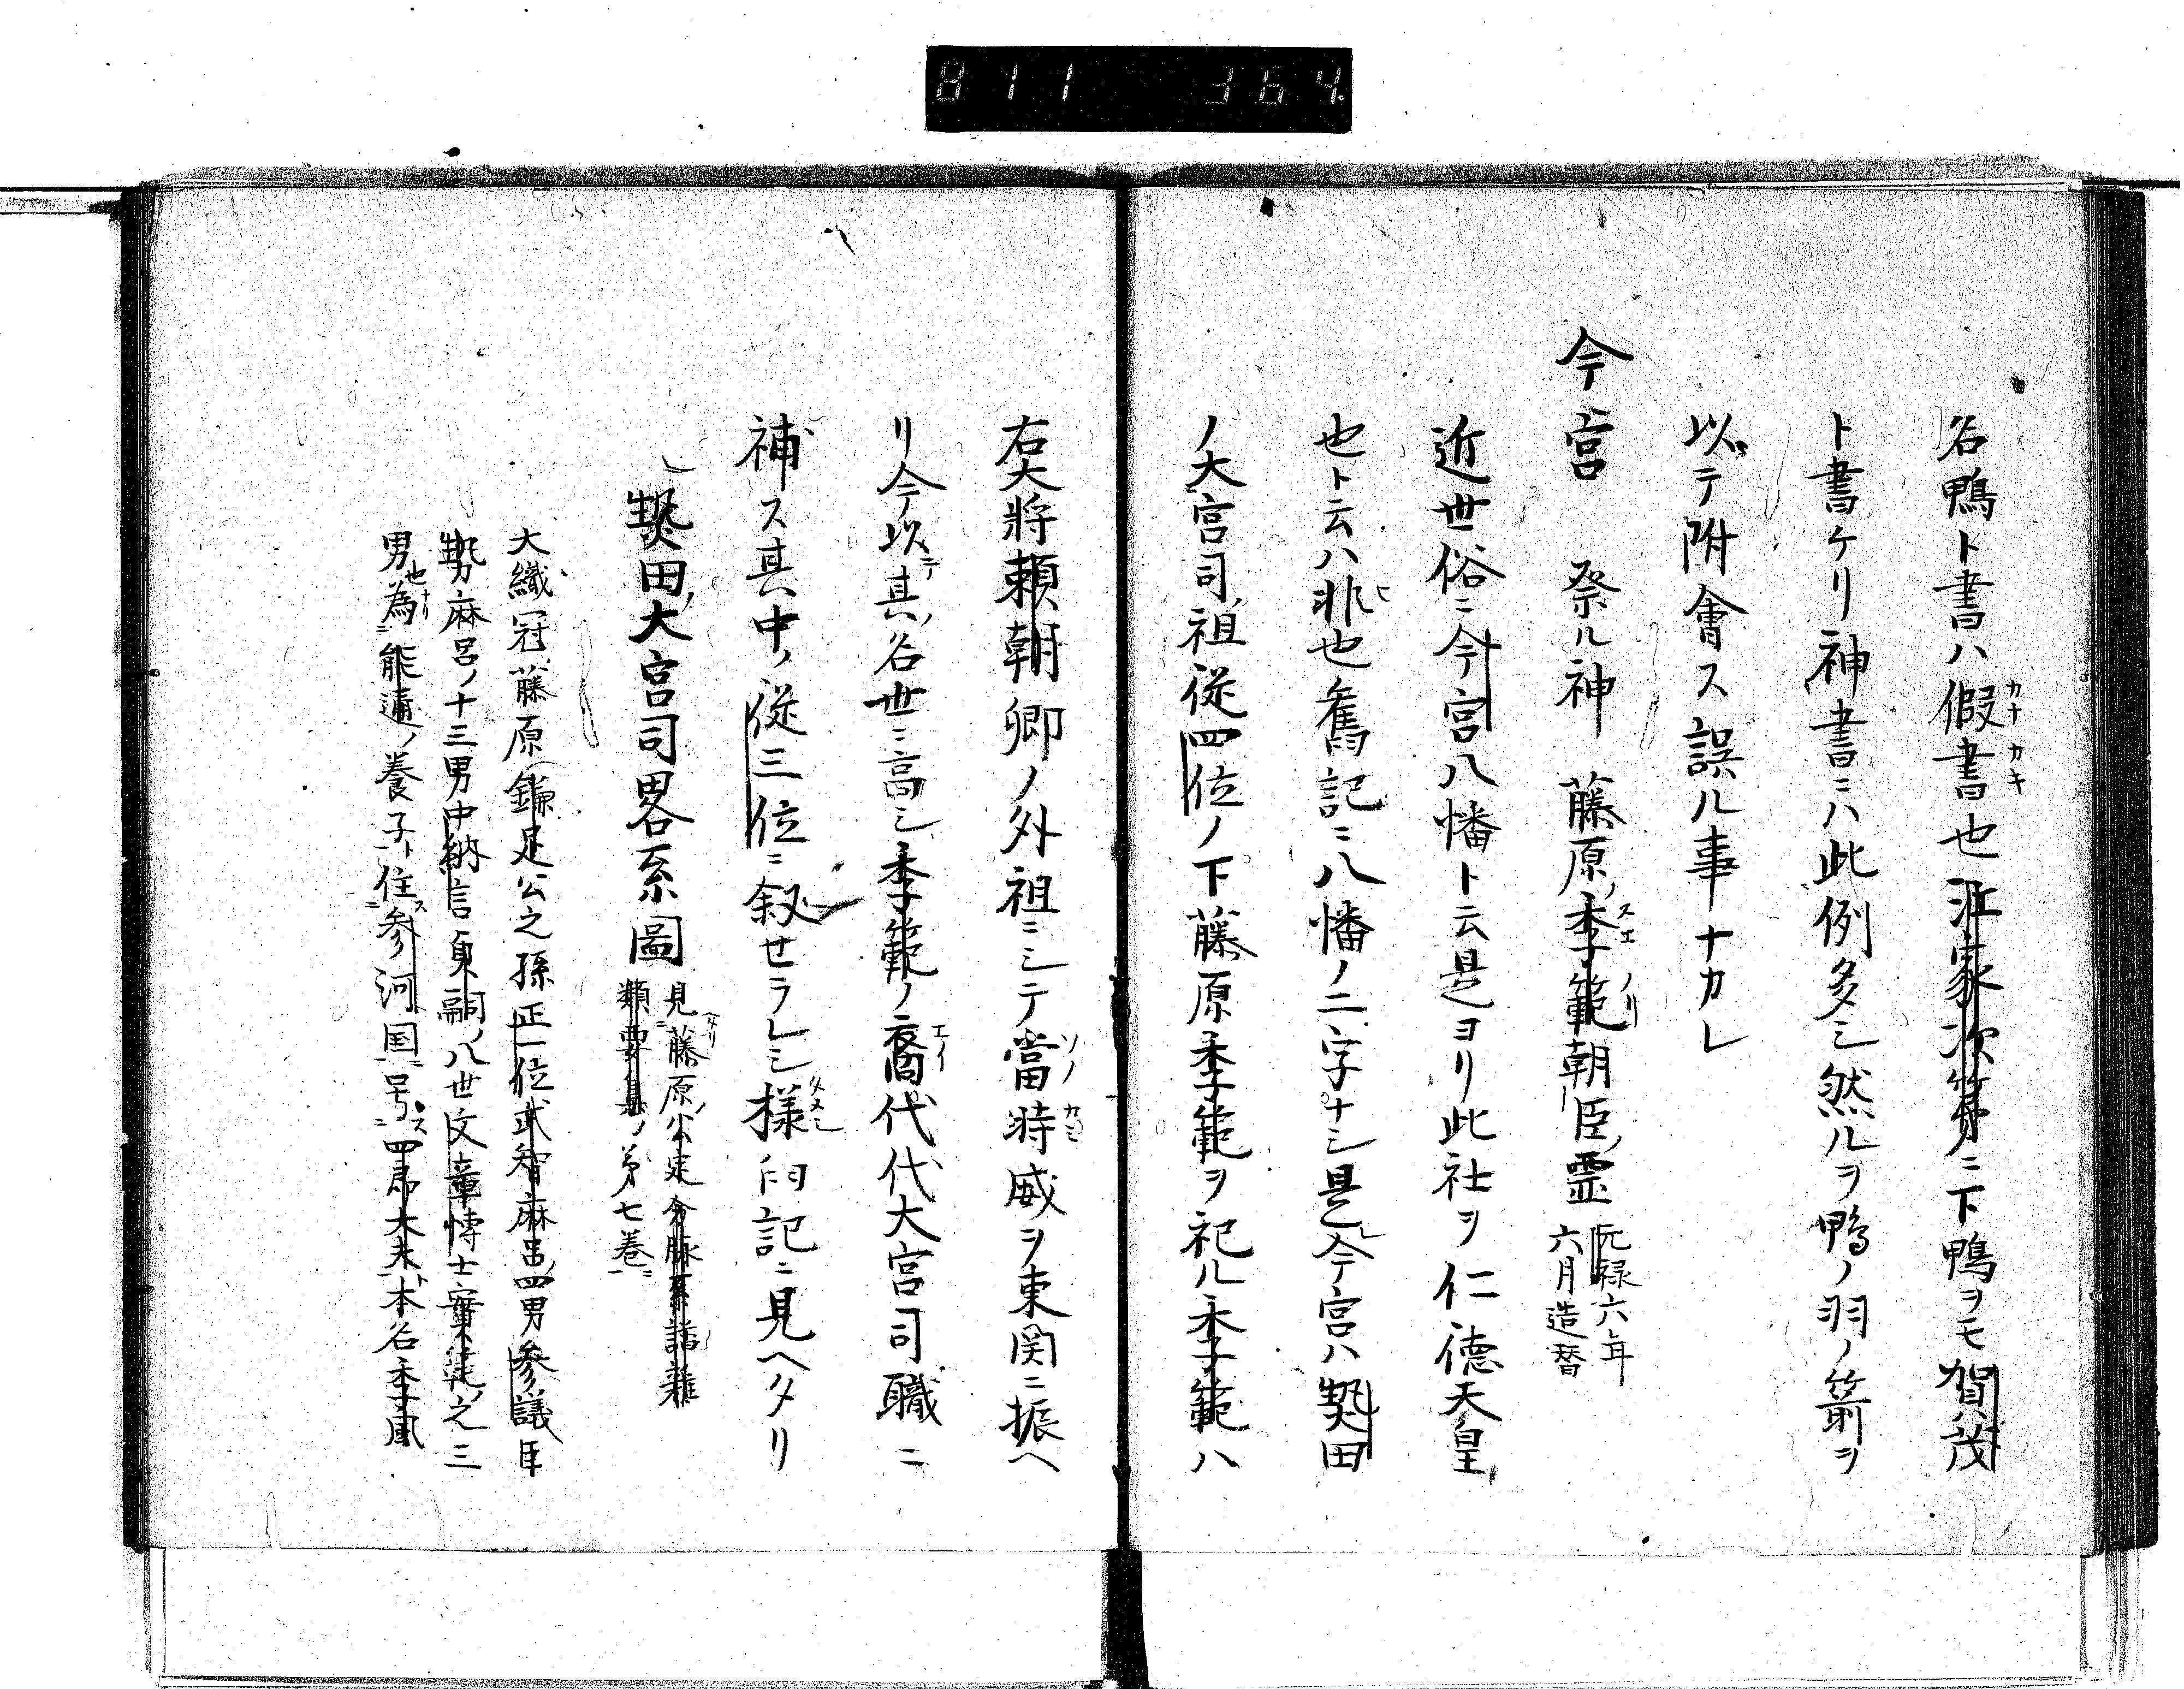 811 364
名鴨ト書ハ假書也江家次第ニ下鴨ヲモ賀茂
カナカキ
ト書ケリ神書ニハ此例多シ然ルヲ鴨ノ羽ノ箭ヲ
以テ附會ス誤ル事ナカレ
今宮 祭ル神 藤原ノ季範朝臣ノ霊 元禄六年
六月造替
スエノリ
近世俗ニ今宮八幡ト云是ヨリ此社ヲ仁徳天皇
也ト云ハ非也舊記ニ八幡ノ二字ナシ是今宮ハ熱田
ノ大宮司ノ祖従四位ノ下藤原季範ヲ祀ル季範ハ
右大將頼朝卿ノ外祖ニシテ當時威ヲ東関ニ振ヘ
ソノカミ
リ今以テ其ノ名世ニ高シ季範ノ裔代代大宮司職ニ
エイ
補ス其ノ中ノ従三位ニ叙せラレシ様旧記ニ見ヘタリ
タメシ
熱田ノ大宮司畧系圖 見藤原ノ公定分脉系譜雜
類要集ノ第七巻ニ
大織冠藤原ノ鎌足公之孫正一位武智麻呂ノ四男参議巨
勢麻呂ノ十三男中納言貞嗣ノ八世文章博士實範之三
男也為能通ノ養子ト住ス参河国ニ号ス四郎大夫ト本名季凰